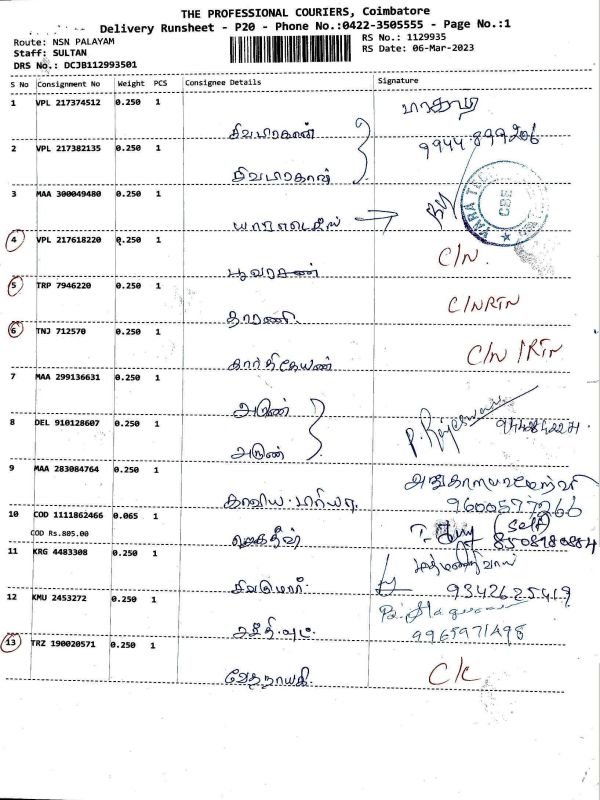 THE PROFESSIONAL COURIERS, Coimbatore
Delivery Runsheet - P20 - Phone No.:0422-3505555 - Page No.:1
Route: NSN PALAYAM
RS No.: 1129935
Staff: SULTAN
RS Date: 06-Mar-2023
DRS No.: DCJB112993501
S No Consignment No Weight PCS Consignee Details Signature
1 VPL 217374512 0.250 1
சிவபிரகாஷ்
9944899206
2 VPL 217382135 0.250 1
சிவபிரகாஷ்
3 MAA 300049480 0.250 1
VARA TEC CBE
4 VPL 217618220 0.250 1
C/N.
5 TRP 7946220 0.250 1
தாரணி C/NRTN
6 TNJ 712570 0.250 1
கார்த்திகேயன் C/N /RTN
7 MAA 299136631 0.250 1
அருண்
8 DEL 910128607 0.250 1
அருண் P. Rajeswari
9 MAA 283084764 0.250 1
காவிய பிரியா 9600577266
10 COD 1111862466 0.065 1
(Self)
COD Rs.805.00
ஜெகதீஷ் 8508980884
11 KRG 4483308 0.250 1
9342625419
12 KMU 2453272 0.250 1
9965971498
13 TRZ 190020571 0.250 1
வேதநாயகி C/C